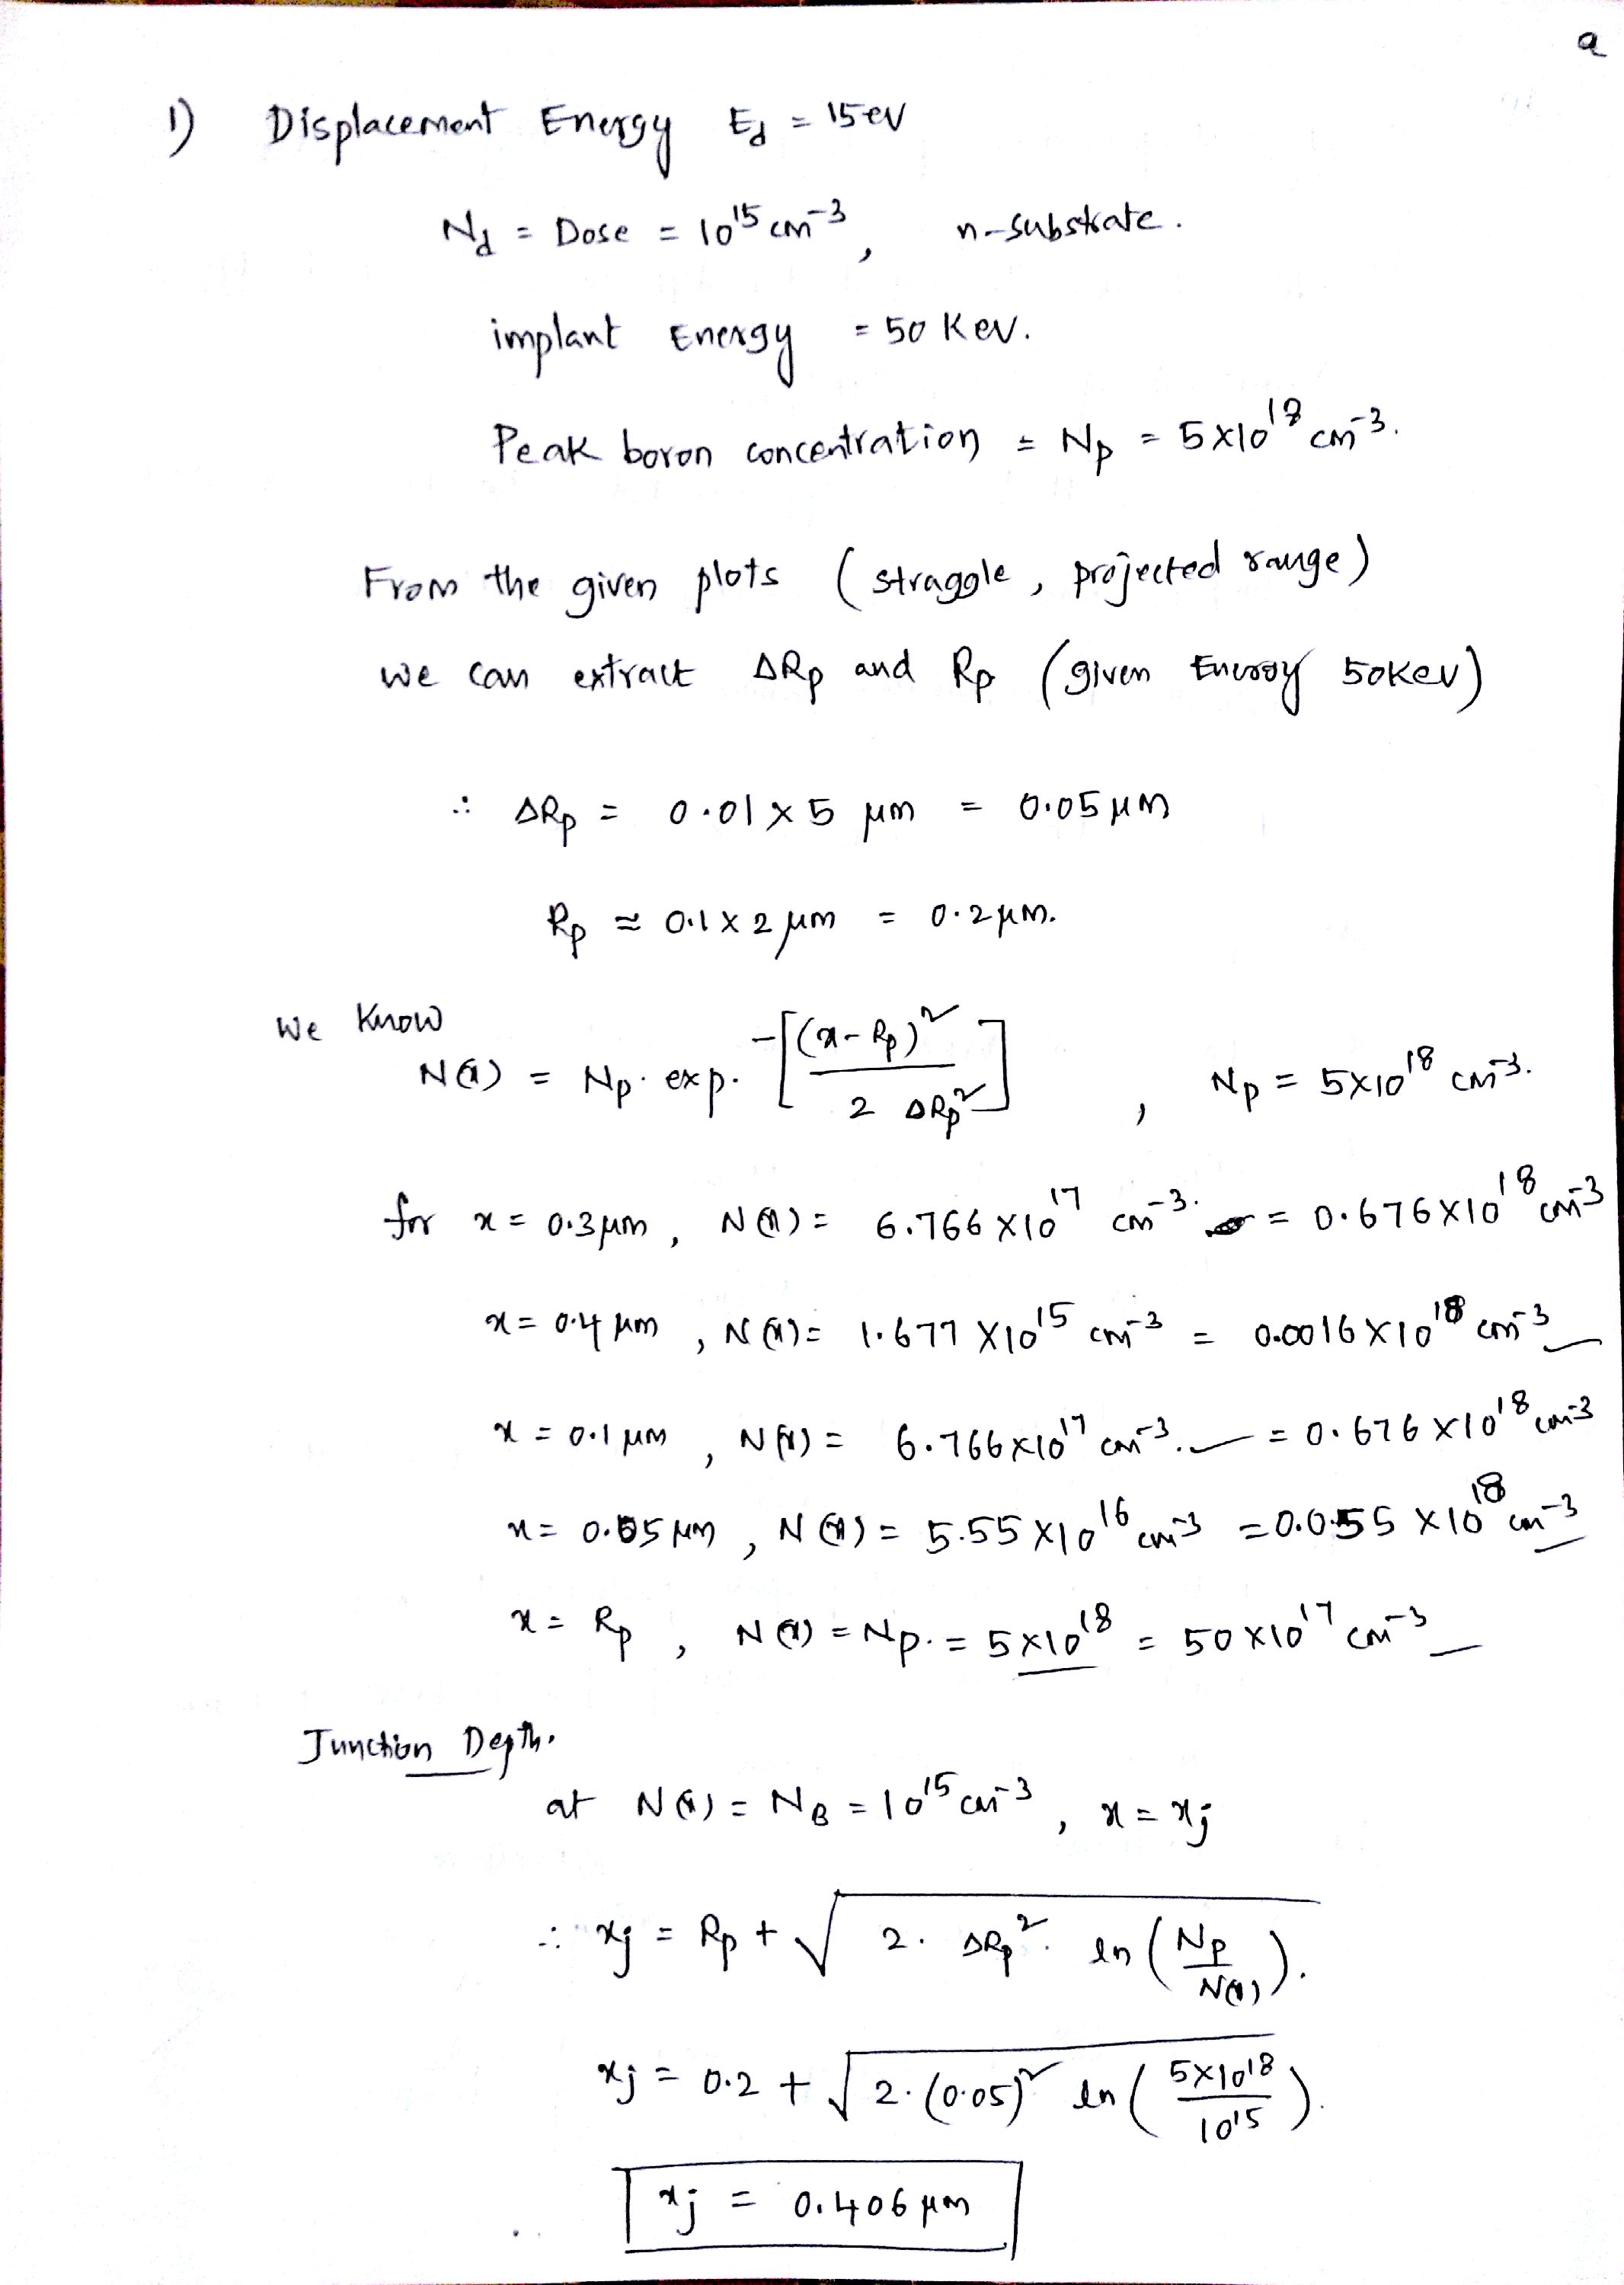 a
1) Displacement Energy E_d = 15 ev
N_d = Dose = 10^15 cm^-3, n-substrate.
implant Energy = 50 Kev.
Peak boron concentration = N_p = 5×10^18 cm^-3.
From the given plots (straggle, projected range)
we can extract ΔR_p and R_p (given Energy 50kev)
∴ ΔR_p = 0.01×5 μm = 0.05 μm
R_p ≈ 0.1×2 μm = 0.2 μm.
We know
N(x) = N_p. exp. -[(x-R_p)^2 / 2 ΔR_p^2], N_p = 5×10^18 cm^-3.
for x = 0.3 μm, N(x) = 6.766×10^17 cm^-3. = 0.676×10^18 cm^-3
x = 0.4 μm, N(x) = 1.677×10^15 cm^-3 = 0.0016×10^18 cm^-3
x = 0.1 μm, N(x) = 6.766×10^17 cm^-3. = 0.676×10^18 cm^-3
x = 0.05 μm, N(x) = 5.55×10^16 cm^-3 = 0.055×10^18 cm^-3
x = R_p, N(x) = N_p. = 5×10^18 = 50×10^17 cm^-3
Junction Depth.
at N(x) = N_B = 10^15 cm^-3, x = x_j
∴ x_j = R_p + √(2. ΔR_p^2. ln(N_p / N(x))).
x_j = 0.2 + √(2.(0.05)^2 ln(5×10^18 / 10^15)).
x_j = 0.406 μm